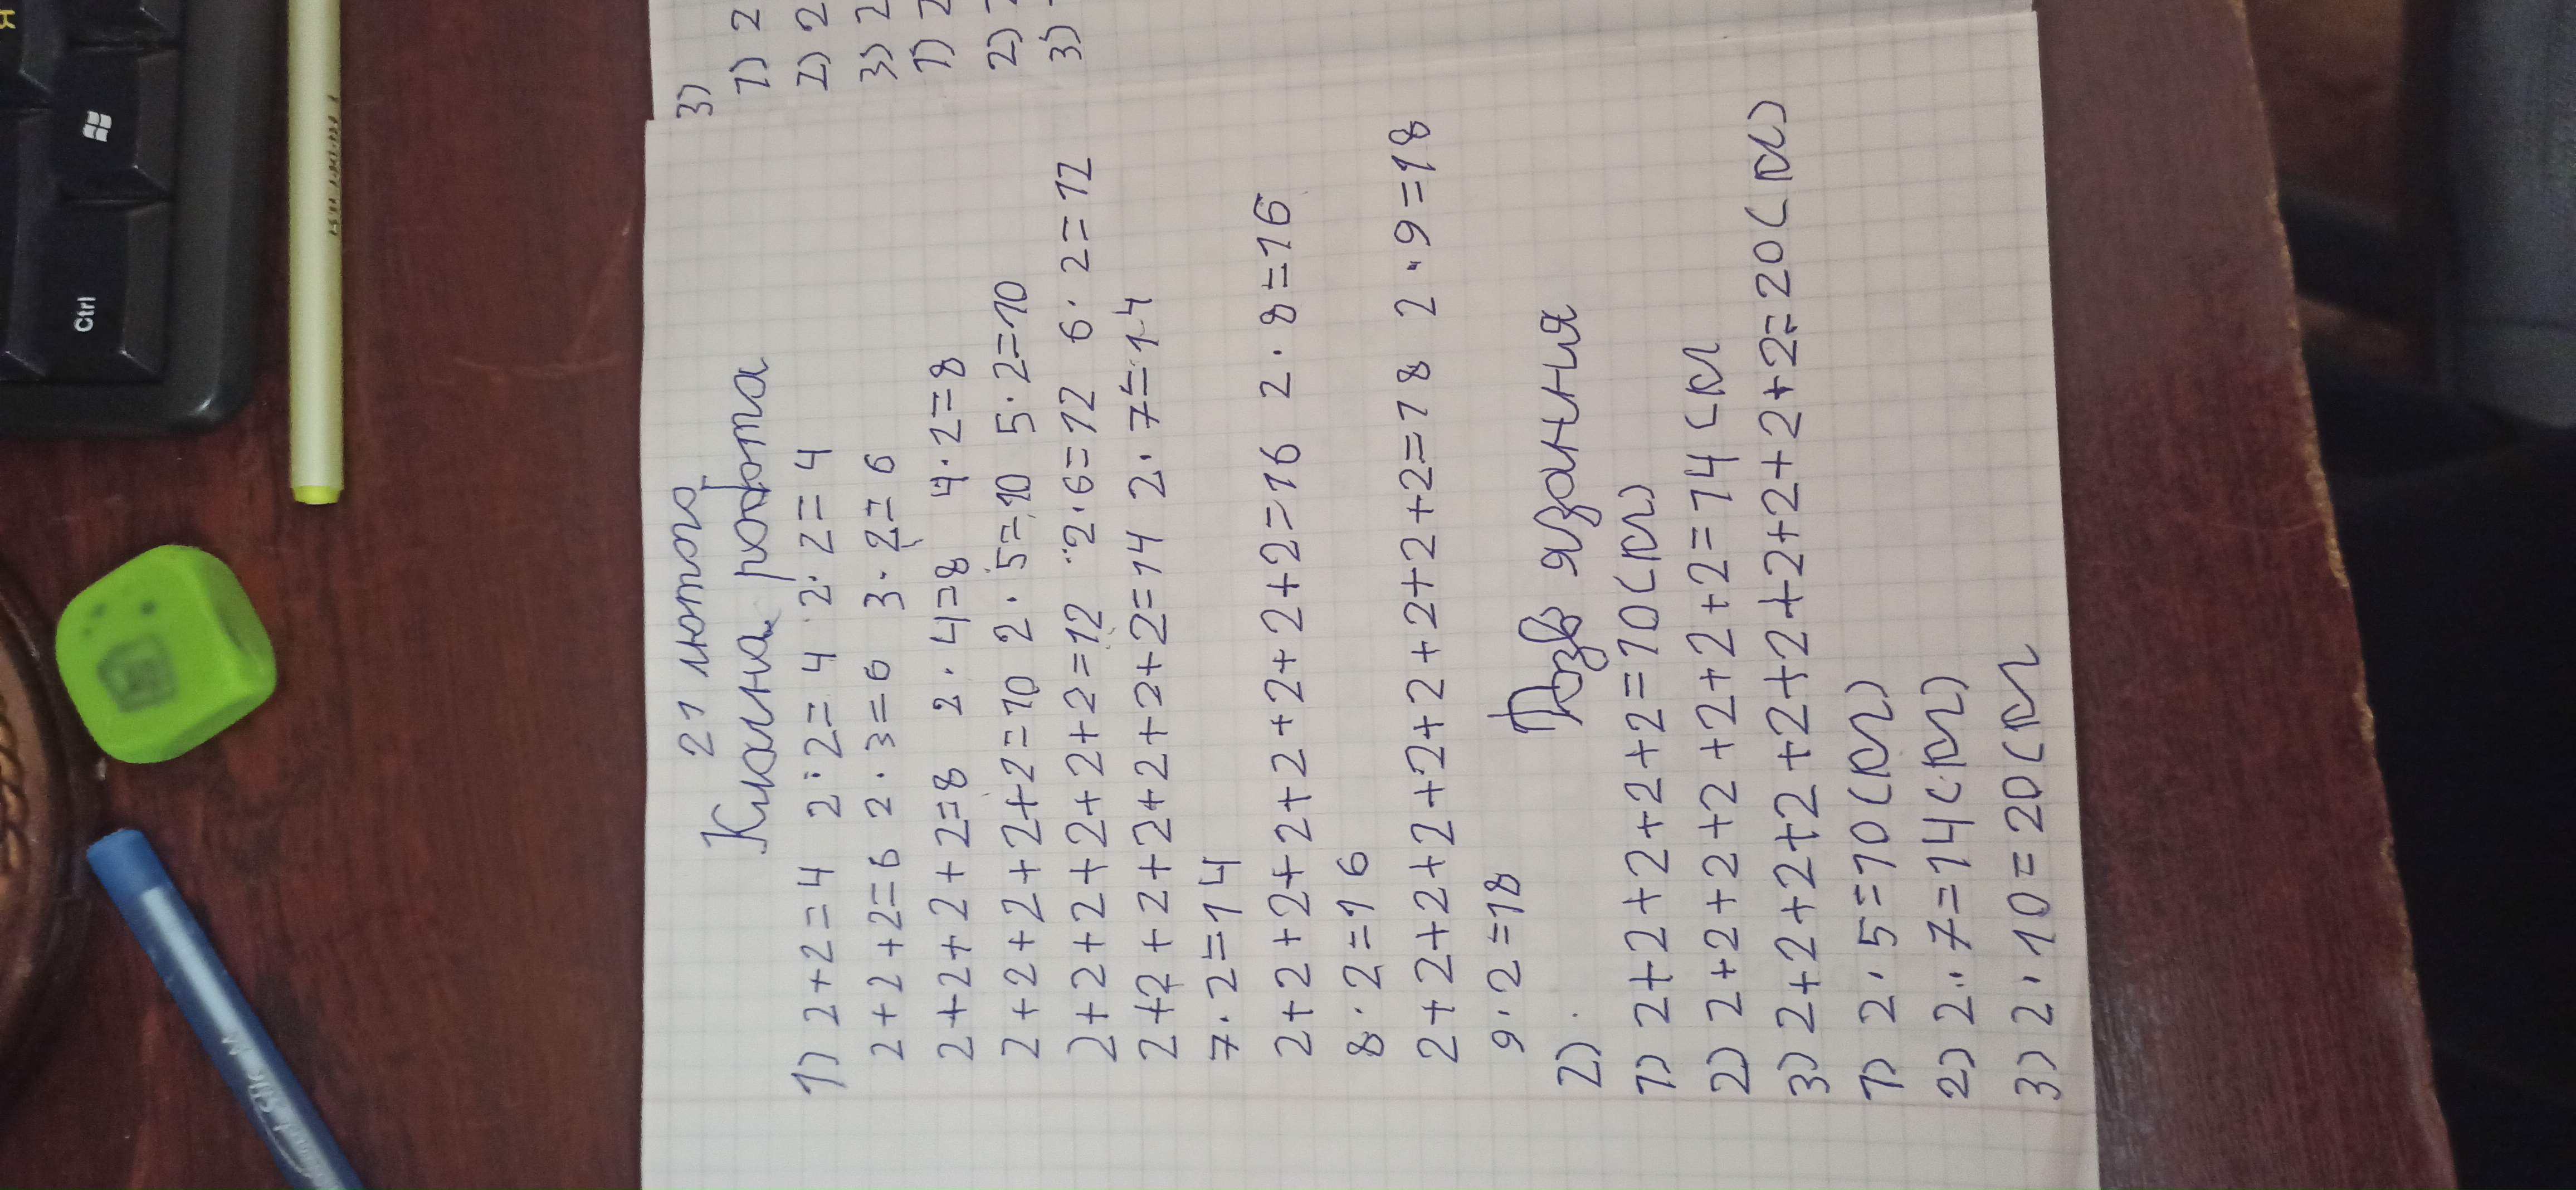 21 лютого
Класна робота
1) 2+2=4 2·2=4 2·2=4
2+2+2=6 2·3=6 3·2=6
2+2+2+2=8 2·4=8 4·2=8
2+2+2+2+2=10 2·5=10 5·2=10
2+2+2+2+2+2=12 2·6=12 6·2=12
2+2+2+2+2+2+2=14 2·7=14
7·2=14
2+2+2+2+2+2+2+2=16 2·8=16
8·2=16
2+2+2+2+2+2+2+2+2=18 2·9=18
9·2=18
2). Розв язання
1) 2+2+2+2+2=10(см)
2) 2+2+2+2+2+2+2=14см
3) 2+2+2+2+2+2+2+2+2+2=20(см)
1) 2·5=10(см)
2) 2·7=14(см)
3) 2·10=20(см
3)
1) 2
2) 2
3) 2
1) 2
2)
3)
Ctrl
Я